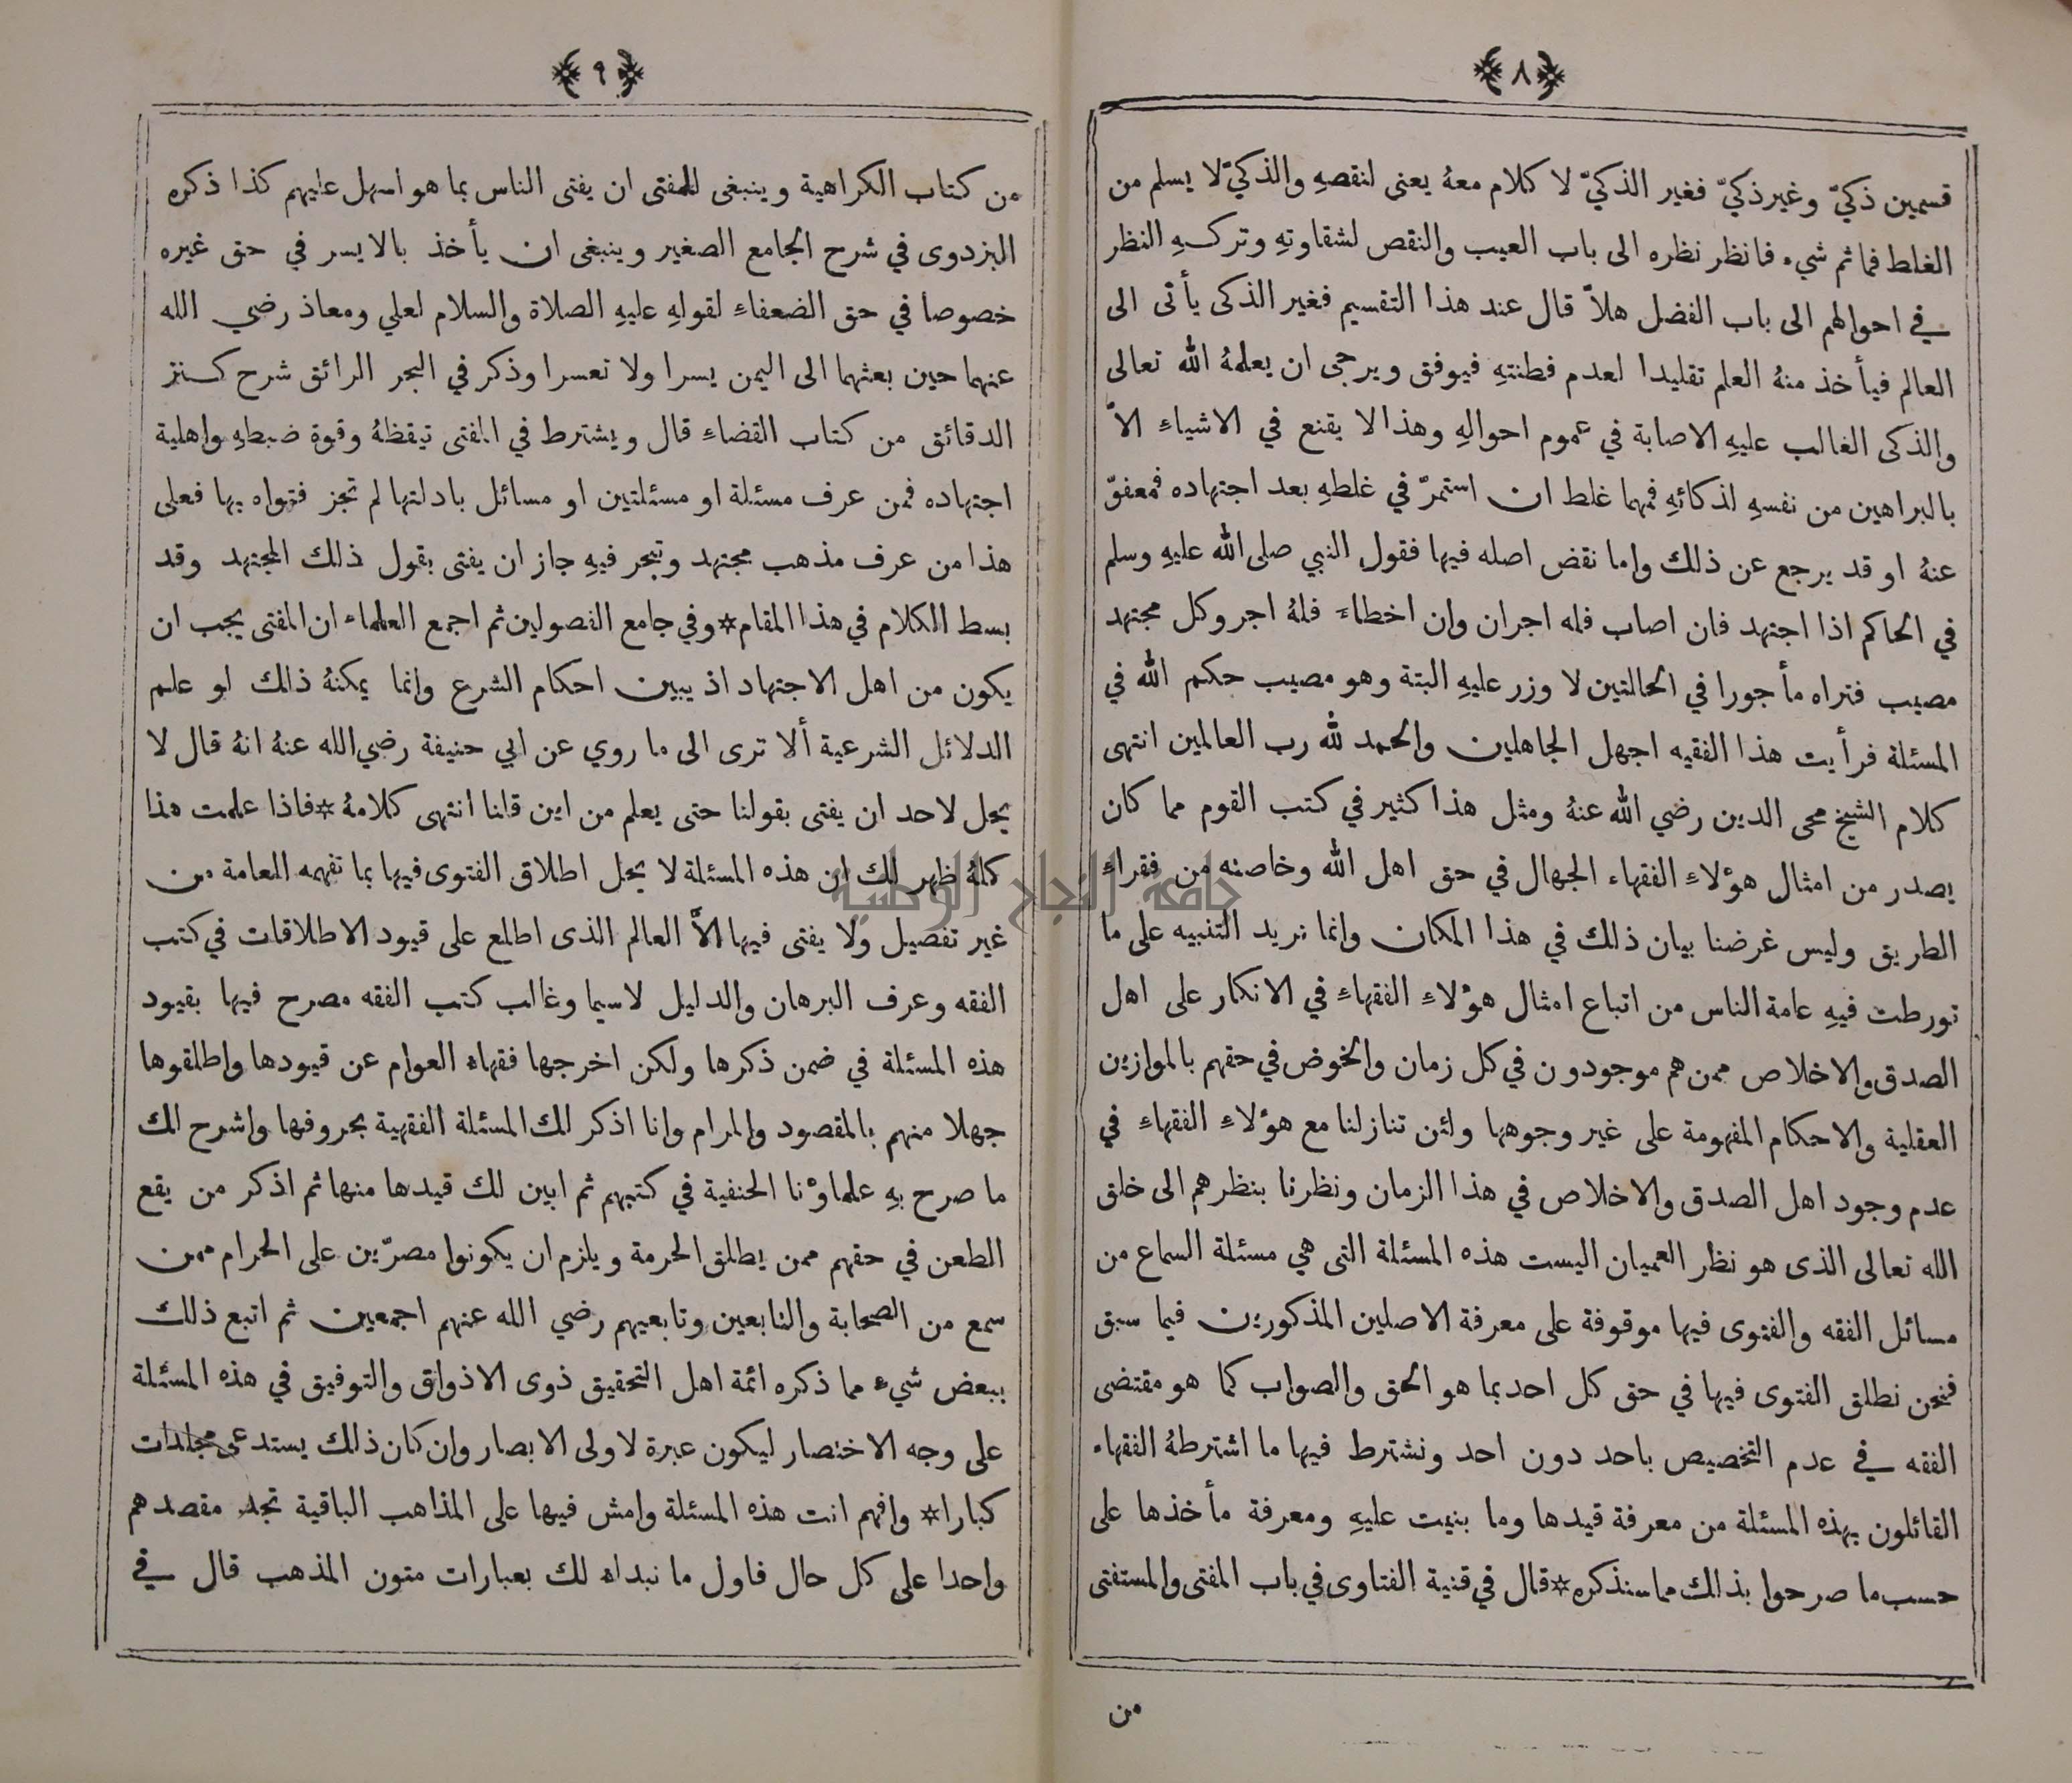 ﴿٨﴾
قسمين ذكيّ وغير ذكيّ فغير الذكيّ لا كلام معهُ يعنى لنقصهِ والذكيّ لا يسلم من
الغلط فما ثم شيء فانظر نظره الى باب العيب والنقص لشقاوتهِ وتركهِ النظر
في احوالهم الى باب الفضل هلاّ قال عند هذا التقسيم فغير الذكى يأتى الى
العالم فيأخذ منهُ العلم تقليدا لعدم فطنتهِ فيوفق ويرجى ان يعلمهُ الله تعالى
والذكى الغالب عليهِ الاصابة في عموم احوالهِ وهذا لا يقنع في الاشياءِ الاّ
بالبراهين من نفسهِ لذكائهِ فمهما غلط ان استمرّ في غلطهِ بعد اجتهاده فمعفوّ
عنهُ او قد يرجع عن ذلك واما نقض اصله فيها فقول النبي صلى الله عليهِ وسلم
في الحاكم اذا اجتهد فان اصاب فله اجران وان اخطاء فلهُ اجر وكل مجتهد
مصيب فتراه مأجورا في الحالتين لا وزر عليهِ البتة وهو مصيب حكم الله في
المسئلة فرأيت هذا الفقيه اجهل الجاهلين والحمد لله رب العالمين انتهى
كلام الشيخ محى الدين رضي الله عنهُ ومثل هذا كثير في كتب القوم مما كان
يصدر من امثال هؤلاءِ الفقهاء الجهال في حق اهل الله وخاصته من فقراءِ
الطريق وليس غرضنا بيان ذلك في هذا المكان وانما نريد التنبيه على ما
تورطت فيهِ عامة الناس من اتباع امثال هؤلاءِ الفقهاءِ في الانكار على اهل
الصدق والاخلاص ممن هم موجودون في كل زمان والخوض في حقهم بالموازين
العقلية والاحكام المفهومة على غير وجوهها ولئن تنازلنا مع هؤلاءِ الفقهاءِ في
عدم وجود اهل الصدق والاخلاص في هذا الزمان ونظرنا بنظرهم الى خلق
الله تعالى الذى هو نظر العميان اليست هذه المسئلة التى هي مسئلة السماع من
مسائل الفقه والفتوى فيها موقوفة على معرفة الاصلين المذكورين فيما سبق
فنحن نطلق الفتوى فيها في حق كل احد بما هو الحق والصواب كما هو مقتضى
الفقه في عدم التخصيص باحد دون احد ونشترط فيها ما اشترطهُ الفقهاء
القائلون بهذه المسئلة من معرفة قيدها وما بنيت عليهِ ومعرفة مأخذها على
حسب ما صرحوا بذلك مما سنذكره * قال في قنية الفتاوى في باب المفتى والمستفتى
من
﴿٩﴾
من كتاب الكراهية وينبغى للمفتى ان يفتى الناس بما هو اسهل عليهم كذا ذكره
البزدوى في شرح الجامع الصغير وينبغى ان يأخذ بالايسر في حق غيره
خصوصا في حق الضعفاءِ لقولهِ عليهِ الصلاة والسلام لعلي ومعاذ رضي الله
عنهما حين بعثهما الى اليمن يسرا ولا تعسرا وذكر في البحر الرائق شرح كنز
الدقائق من كتاب القضاءِ قال ويشترط في المفتى تيقظهُ وقوة ضبطهِ واهلية
اجتهاده فمن عرف مسئلة او مسئلتين او مسائل بادلتها لم تجز فتواه بها فعلى
هذا من عرف مذهب مجتهد وتبحر فيهِ جاز ان يفتى بقول ذلك المجتهد وقد
بسط الكلام في هذا المقام * وفي جامع الفصولين ثم اجمع العلماء ان المفتى يجب ان
يكون من اهل الاجتهاد اذ يبين احكام الشرع وانما يمكنهُ ذالك لو علم
الدلائل الشرعية ألا ترى الى ما روي عن ابي حنيفة رضي الله عنهُ انهُ قال لا
يحل لاحد ان يفتى بقولنا حتى يعلم من اين قلنا انتهى كلامهُ * فاذا علمت هذا
كلهُ ظهر لك ان هذه المسئلة لا يحل اطلاق الفتوى فيها بما تفهمه العامة من
غير تفصيل ولا يفتى فيها الاَّ العالم الذى اطلع على قيود الاطلاقات في كتب
الفقه وعرف البرهان والدليل لاسيما وغالب كتب الفقه مصرح فيها بقيود
هذه المسئلة في ضمن ذكرها ولكن اخرجها فقهاء العوام عن قيودها واطلقوها
جهلا منهم بالمقصود والمرام وانا اذكر لك المسئلة الفقهية بحروفها واشرح لك
ما صرح بهِ علماؤنا الحنفية في كتبهم ثم ابين لك قيدها منها ثم اذكر من يقع
الطعن في حقهم ممن يطلق الحرمة ويلزم ان يكونوا مصرّين على الحرام ممن
سمع من الصحابة والتابعين وتابعيهم رضي الله عنهم اجمعين ثم اتبع ذلك
ببعض شيء مما ذكره ائمة اهل التحقيق ذوى الاذواق والتوفيق في هذه المسئلة
على وجه الاختصار ليكون عبرة لاولى الابصار وان كان ذلك يستدعى مجلدات
كبارا * وافهم انت هذه المسئلة وامش فيها على المذاهب الباقية تجد مقصدهم
واحدا على كل حال فاول ما نبداه لك بعبارات متون المذهب قال في
جامعة النجاح الوطنية